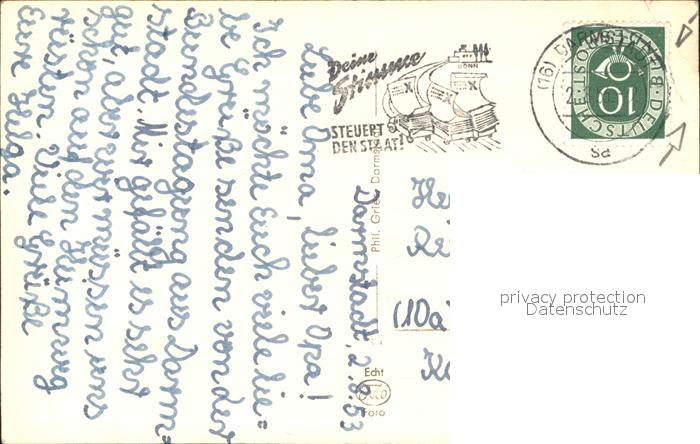 Darmstadt, 2.8.53
Liebe Oma, lieber Opa!
Ich möchte Euch viele lie=
be Grüße senden von der
Bundestagung aus Darm=
stadt. Mir gefällt es sehr
gut, aber erst müssen uns
schon auf den Heimweg
rüsten. Viele Grüße
Eure Helga.
Deine
Stimme
STEUERT
DEN STAAT!
BONN
(16) DARMSTADT
sd
DEUTSCHE BUNDESPOST
10
(10a)
Echt
Foto
privacy protection
Datenschutz